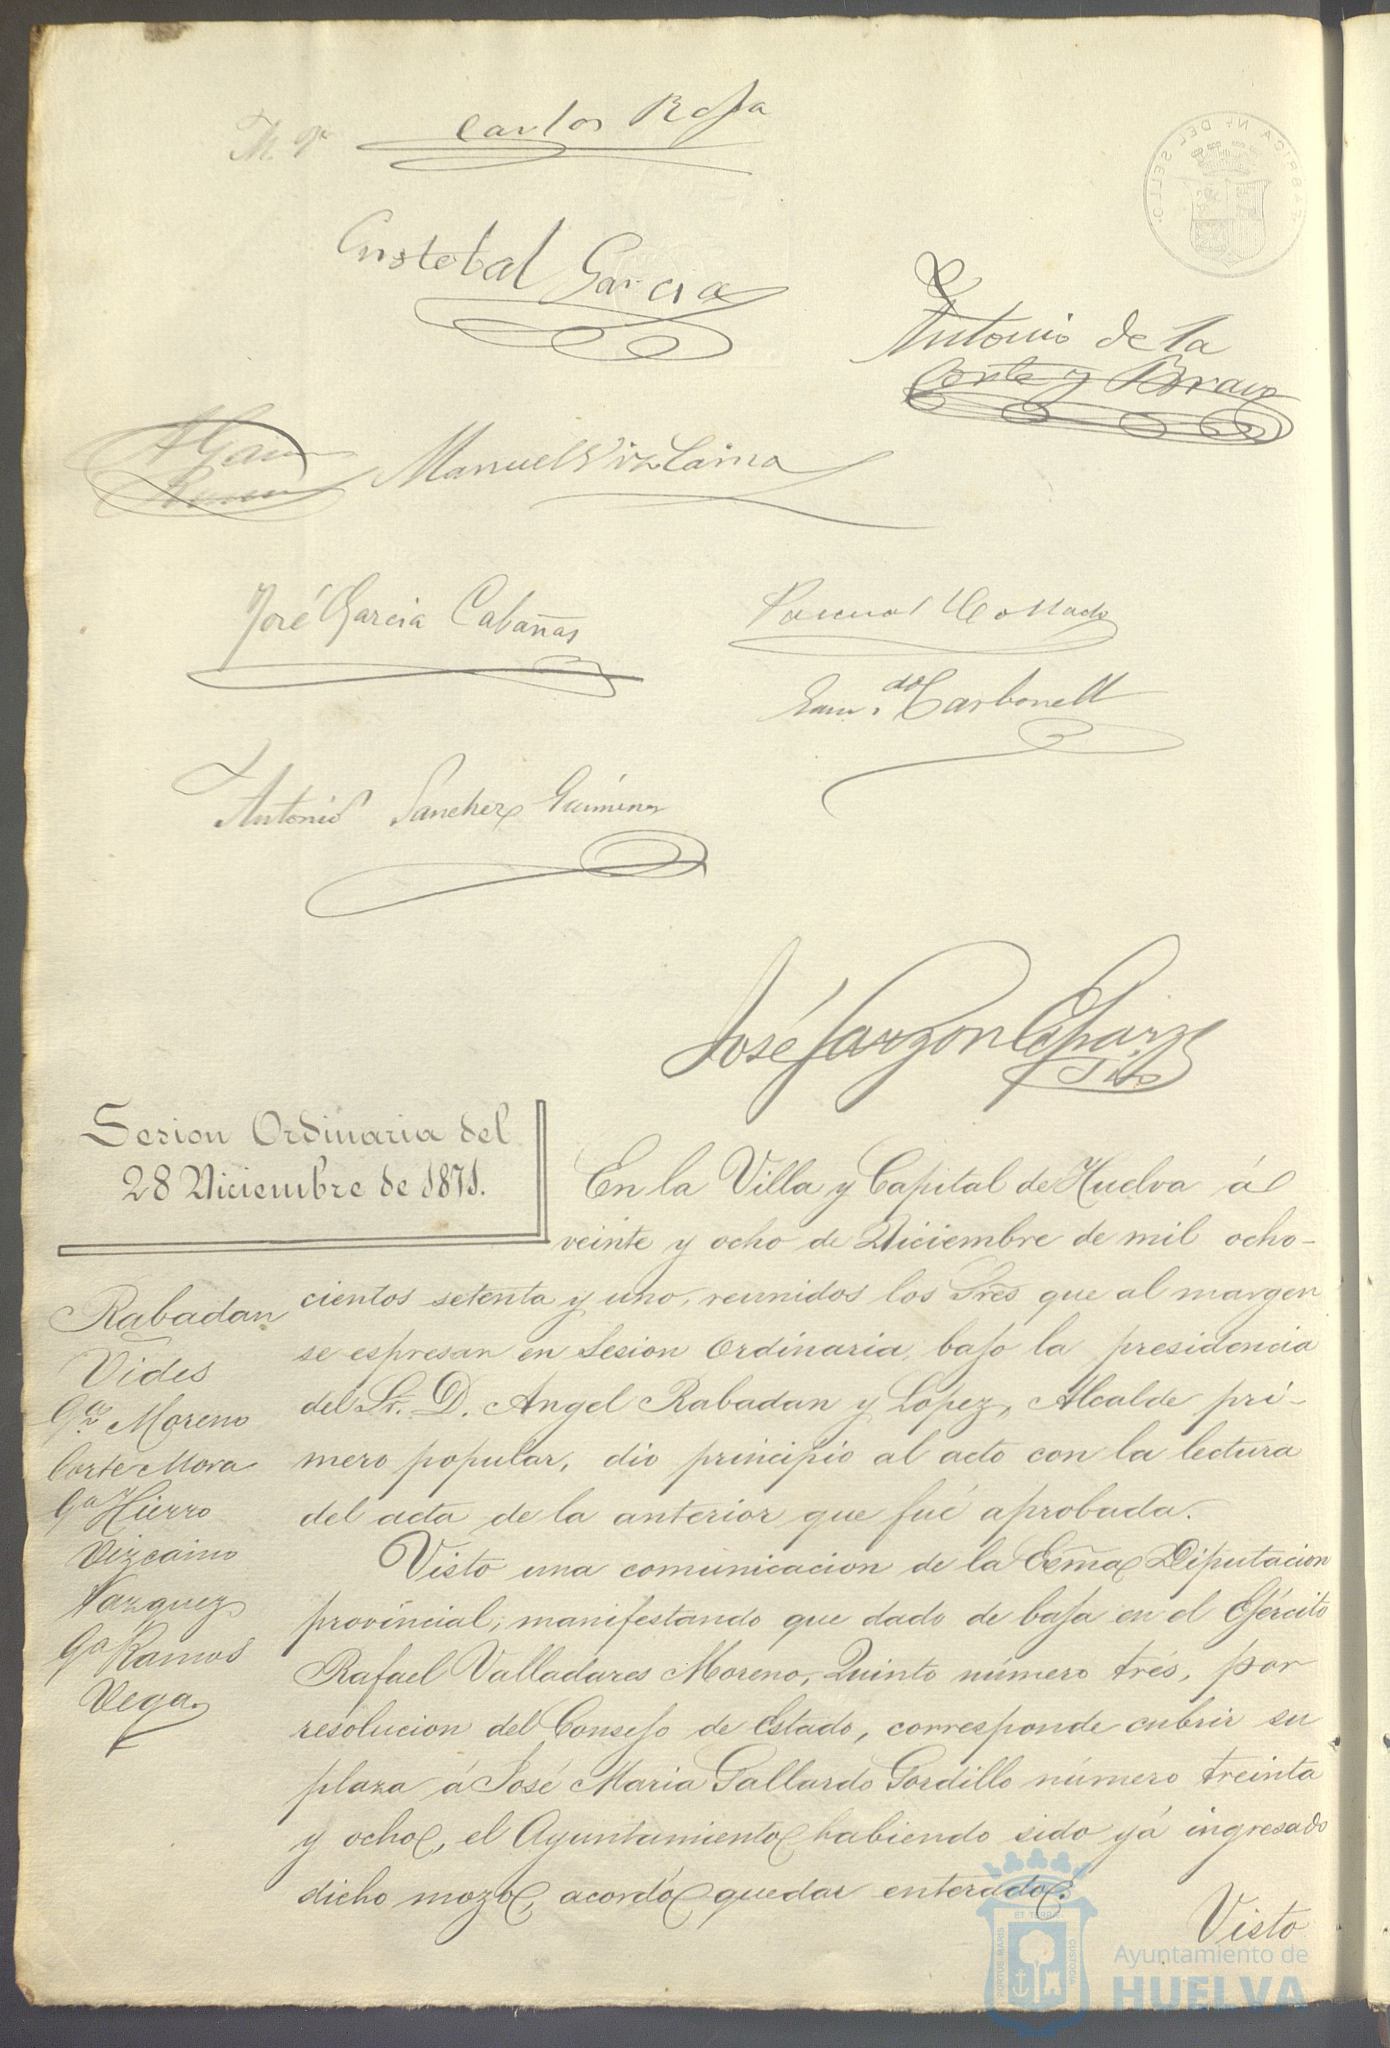 Carlos Rofa
Cristobal Garcia
Antonio de la
Corte y Bravo
Manuel Vizcaino
José Garcia Cabañas
Pascual Collado
Carbonell
Antonio Sanchez
José Garzon
Sesion Ordinaria del
28 Diciembre de 1871.
Rabadan
Vides
Gª Moreno
Corte Mora
Gª Hierro
Vizcaino
Vazquez
Gª Ramos
Vega.
En la Villa y Capital de Huelva á
veinte y ocho de Diciembre de mil ocho-
cientos setenta y uno, reunidos los Sres que al margen
se espresan en Sesion Ordinaria, bajo la presidencia
del Sr. D. Angel Rabadan y Lopez, Alcalde pri-
mero popular, dio principio al acto con la lectura
del acta de la anterior que fué aprobada.
Visto una comunicacion de la Exma Diputacion
provincial, manifestando que dado de baja en el Ejército
Rafael Valladares Moreno, Quinto número trés, por
resolucion del Consejo de Estado, corresponde cubrir su
plaza á José Maria Gallardo Gordillo número treinta
y ocho, el Ayuntamiento habiendo sido yá ingresado
dicho mozo, acordó quedar enterado.
Visto
Ayuntamiento de
HUELVA